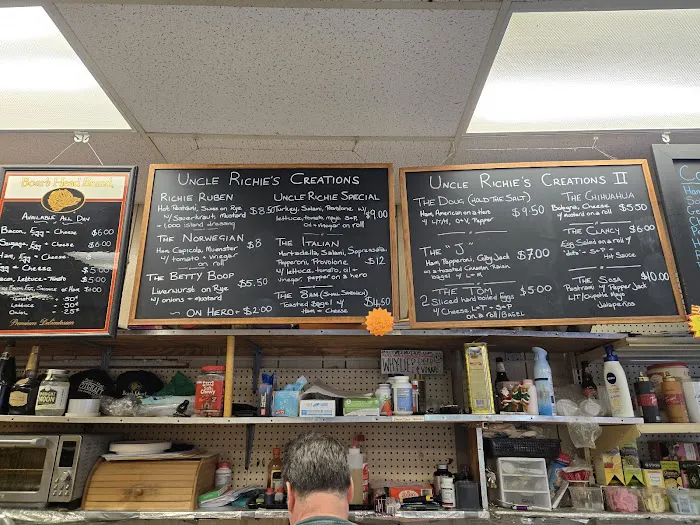 Boar's Head Brand
AVAILABLE ALL DAY
BACON, Egg + Cheese $6.00
Sausage, Egg + Cheese $6.00
Ham, Egg + Cheese
Egg + Cheese $5.00
BACON, Lettuce + Tomato $5.00
Tomato 50¢
Lettuce
Onion 25¢
Premium Delicatessen
UNCLE RICHIE'S CREATIONS
RICHIE RUBEN
Hot Pastrami, Swiss on Rye $8.50
w/ Sauerkraut, Mustard
+ 1,000 island dressing
THE NORWEGIAN $8
Ham Capicola, Muenster
w/ tomato + vinegar
on roll
THE BETTY BOOP
Liverwurst on Rye $5.50
w/ onions + mustard
~ ON HERO + $2.00
UNCLE RICHIE SPECIAL
Turkey, Salami, Provolone w/ $9.00
lettuce, tomato, mayo S+P,
oil + vinegar on roll
THE ITALIAN
Mortadella, Salami, Sopressata,
Pepperoni, Provolone $12
w/ lettuce, tomato, oil +
vinegar, pepper on a hero
THE 8AM (SMALL SANDWICH)
Toasted Bagel w/ $4.50
Ham + Cheese
UNCLE RICHIE'S CREATIONS II
THE DOUG (HOLD THE SALT)
Ham, American on a Hero $9.50
w/ L+T/M, O+V, Pepper
THE "J"
Ham, Pepperoni, Colby Jack $7.00
on a toasted Cinnamon Raisin
bagel w/ L + M
THE TOM
2 Sliced hard boiled Eggs $5.00
w/ Cheese, L+T - S+P
on a roll/BAGEL
THE CHIHUAHUA
Bologna, Cheese $5.50
w/ mustard on a roll
THE CLANCY $6.00
Egg Salad on a roll w/
S+P
Hot Sauce
THE SOSA $10.00
Pastrami w/ Pepper Jack
L/T Chipotle Mayo
Jalapeños
NIVEA